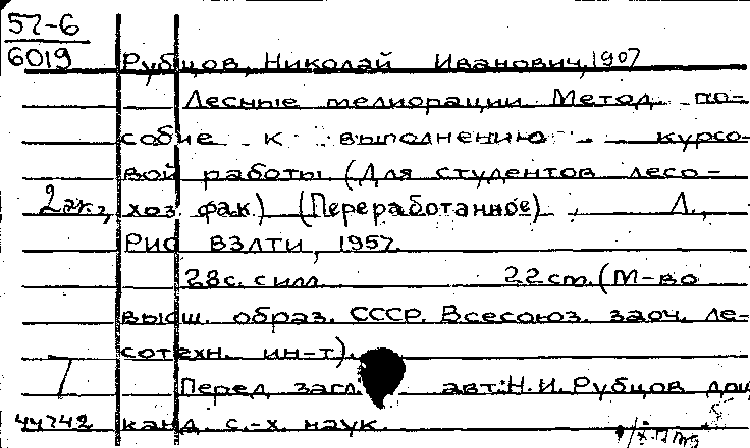 57-6
6019
Рубцов, Николай Иванович, 1907
Лесные мелиорации. Метод. по-
собие к выполнению курсо-
вой работы. (Для студентов лесо-
2 экз, хоз. фак.) (Переработанное). Л.,
РИС ВЗЛТИ, 1957.
28 с. с илл. 22 см. (М-во
высш. образ. СССР. Всесоюз. заоч. ле-
сотехн. ин-т).
Перед загл. авт: Н.И. Рубцов доц.
44742 канд. с.-х. наук.